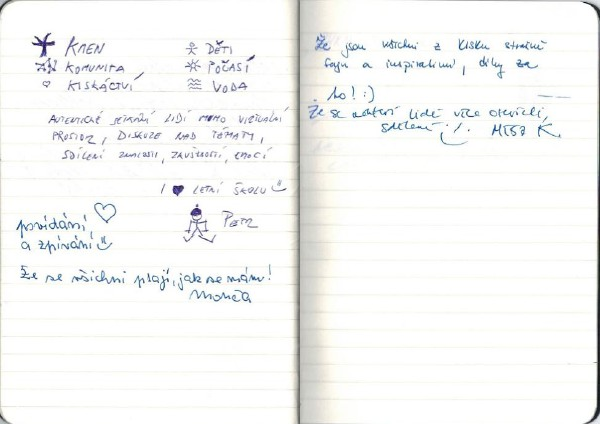 KMEN
DĚTI
KOMUNITA
POČASÍ
KISKÁCTVÍ
VODA
AUTENTICKÉ SETKÁNÍ LIDÍ MIMO VIRTUÁLNÍ
PROSTOR, DISKUZE NAD TÉMATY,
SDÍLENÍ ZNALOSTÍ, ZKUŠENOSTÍ, EMOCÍ
I ♥ LETNÍ ŠKOLU
PETR
povídání,
a zpívání
Že se všichni ptají, jak se mám!
Že jsou všichni z KISKu strašně
fajn a inspirativní, díky za
to! :)
Že se někteří lidé více otevřeli,
sdílení :). MíSa K.